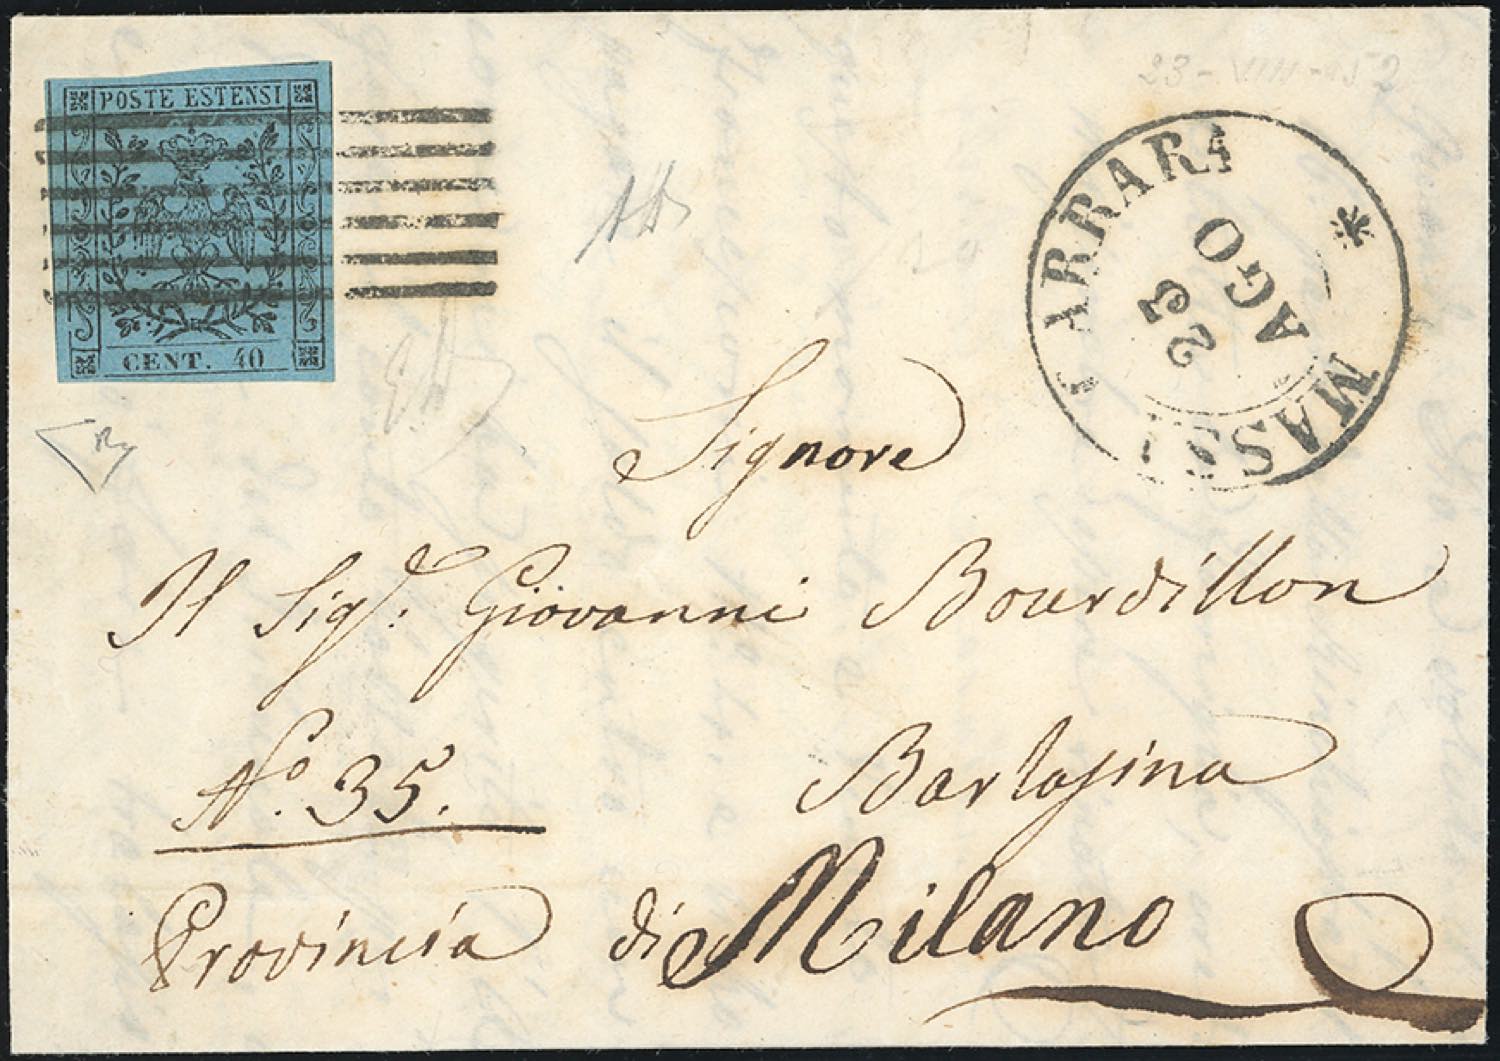 POSTE ESTENSI
CENT. 40
MASSA CARRARA
23
AGO
Signore
Il Sigr. Giovanni Bourdillon
No. 35. Barlasina
Provincia di Milano